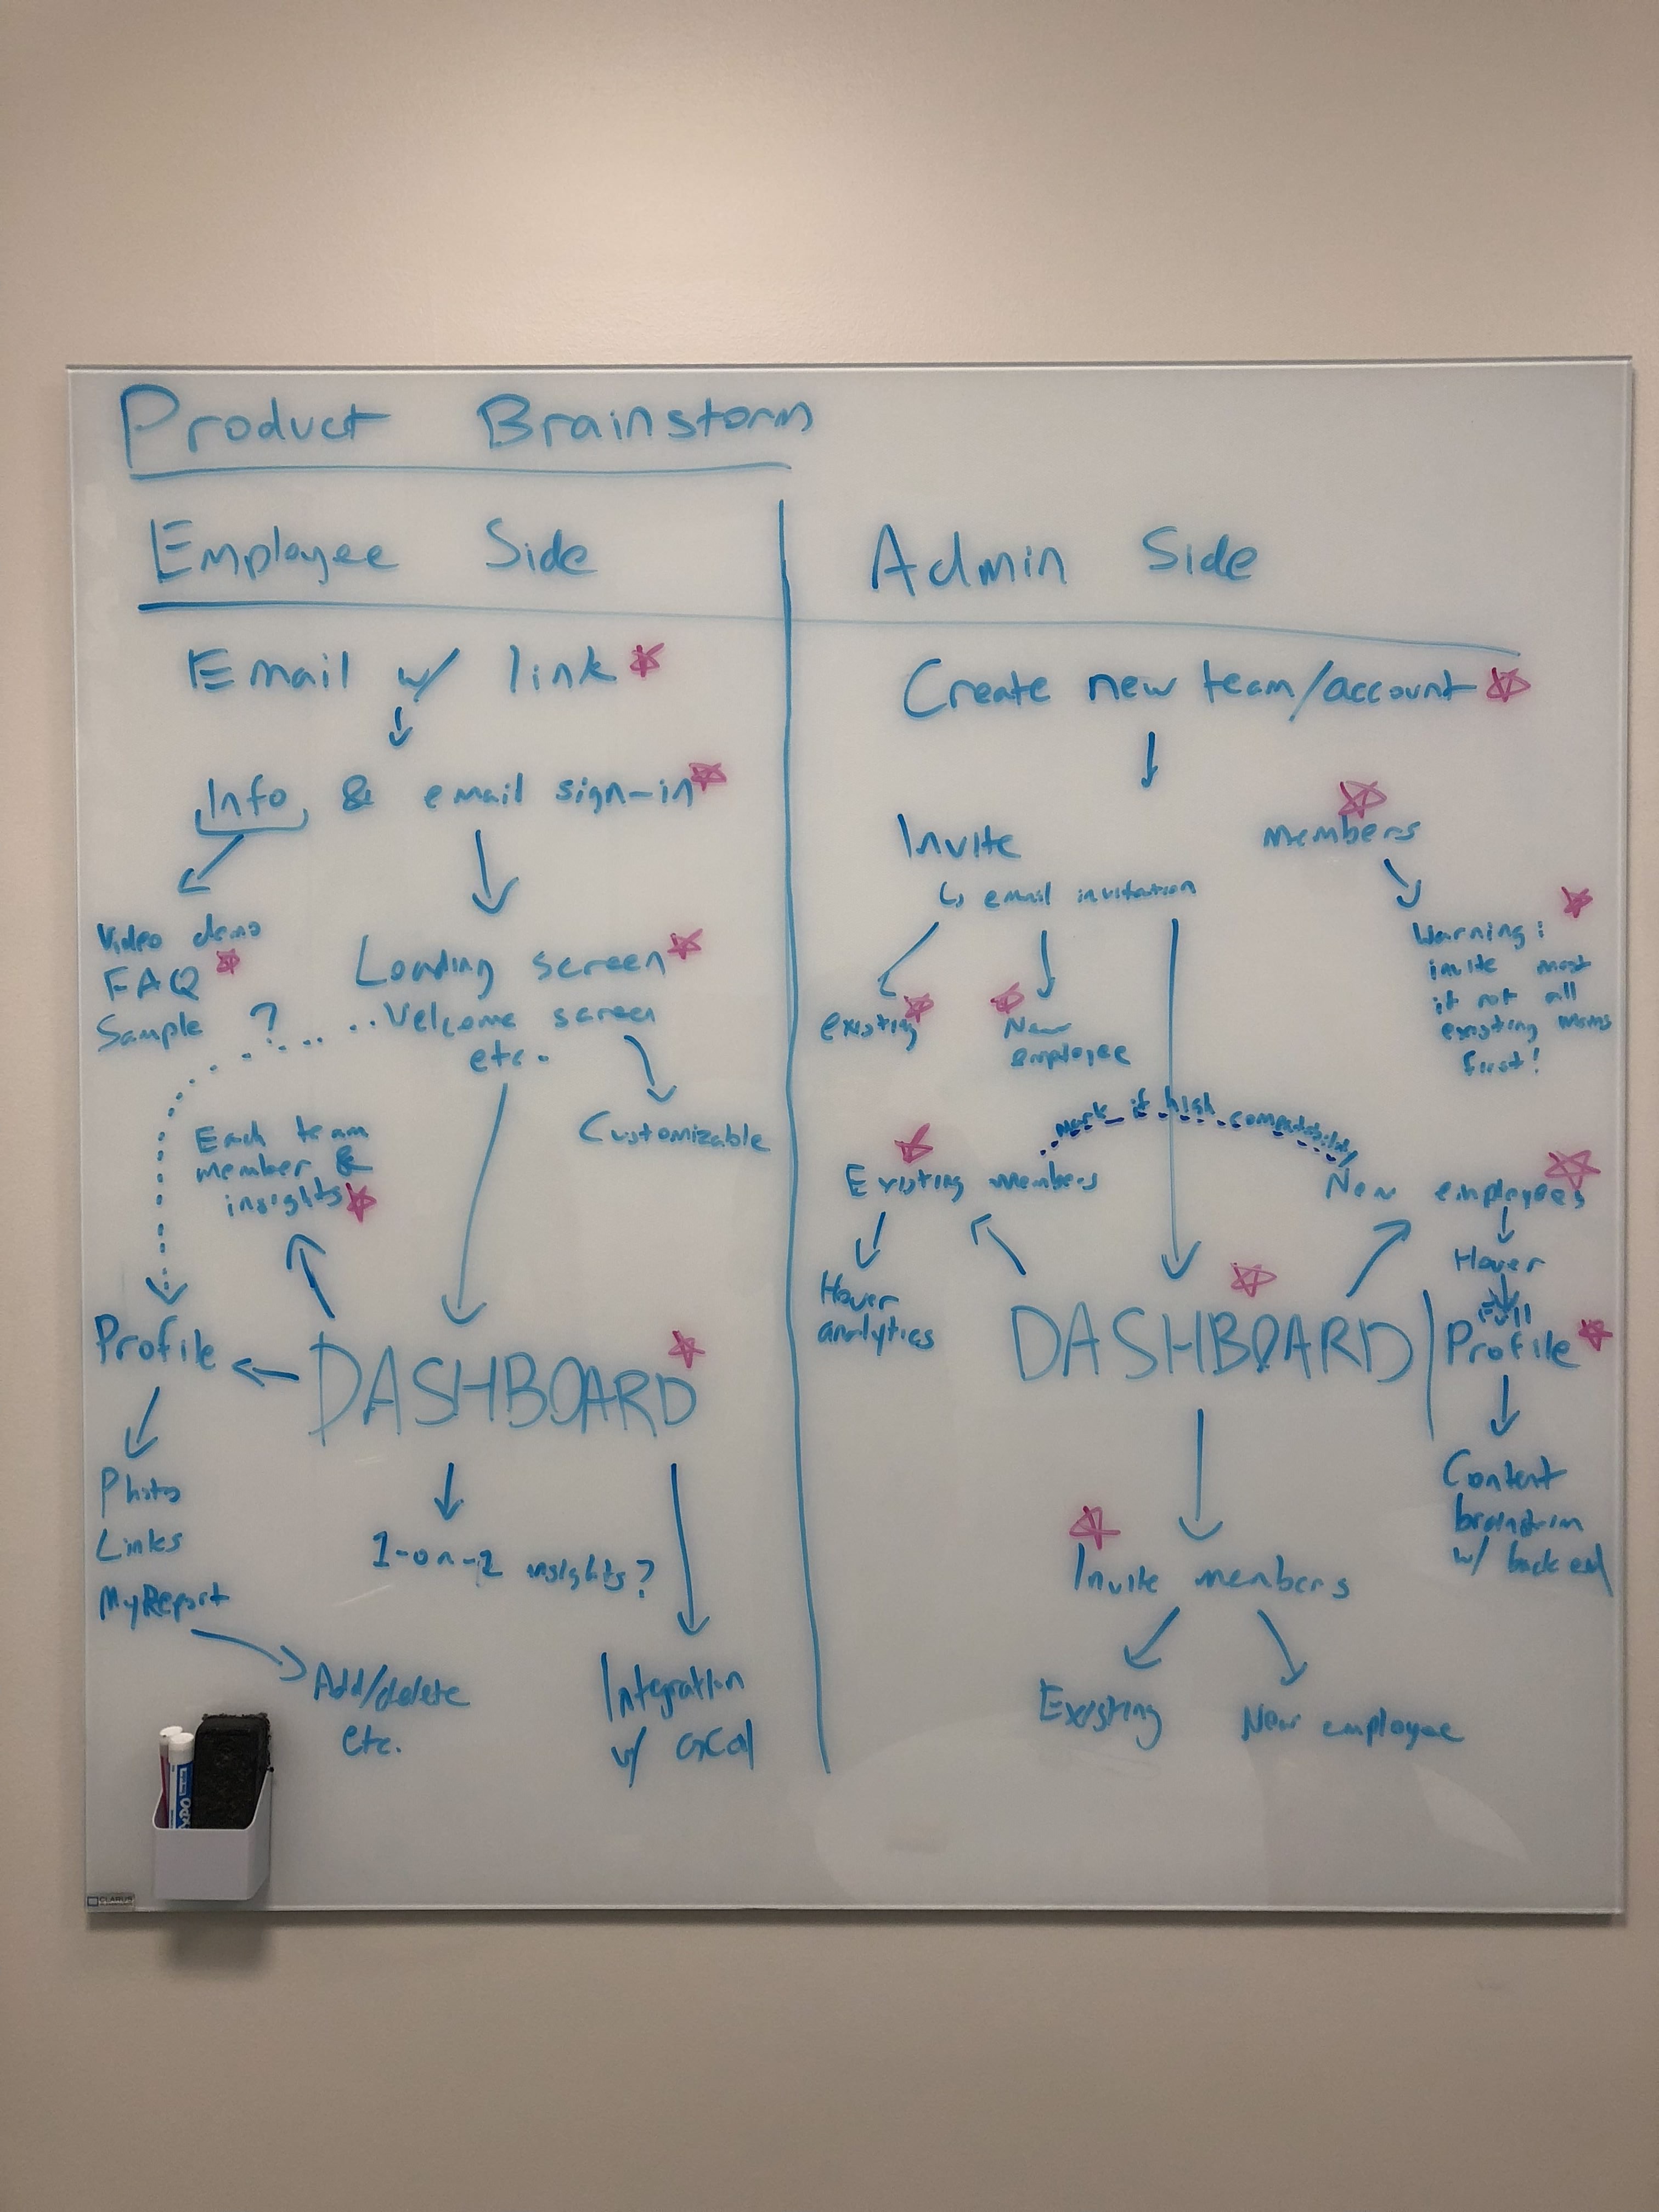 Product Brainstorm
Employee Side
Email w/ link
Info & email sign-in
Video demo
FAQ
Sample ?
Loading screen
Welcome screen
etc.
Customizable
Each team
member &
insights
Profile
DASHBOARD
Photo
Links
MyReport
Add/delete
etc.
1-on-1 insights?
Integration
w/ GCal
Admin Side
Create new team/account
Invite members
↳ email invitation
Warning:
invite most
if not all
existing mems
first!
existing
New
employee
mark if high compatability
Existing members
New employees
Hover
analytics
Hover
Full
Profile
DASHBOARD
Content
brainstrm
w/ back end
Invite members
Existing
New employee
EXPO
CLARUS